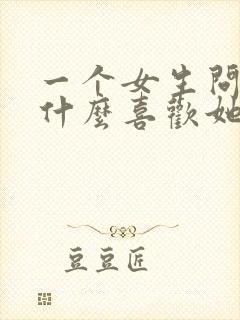 一个女生問
什麼喜歡她
豆豆匠